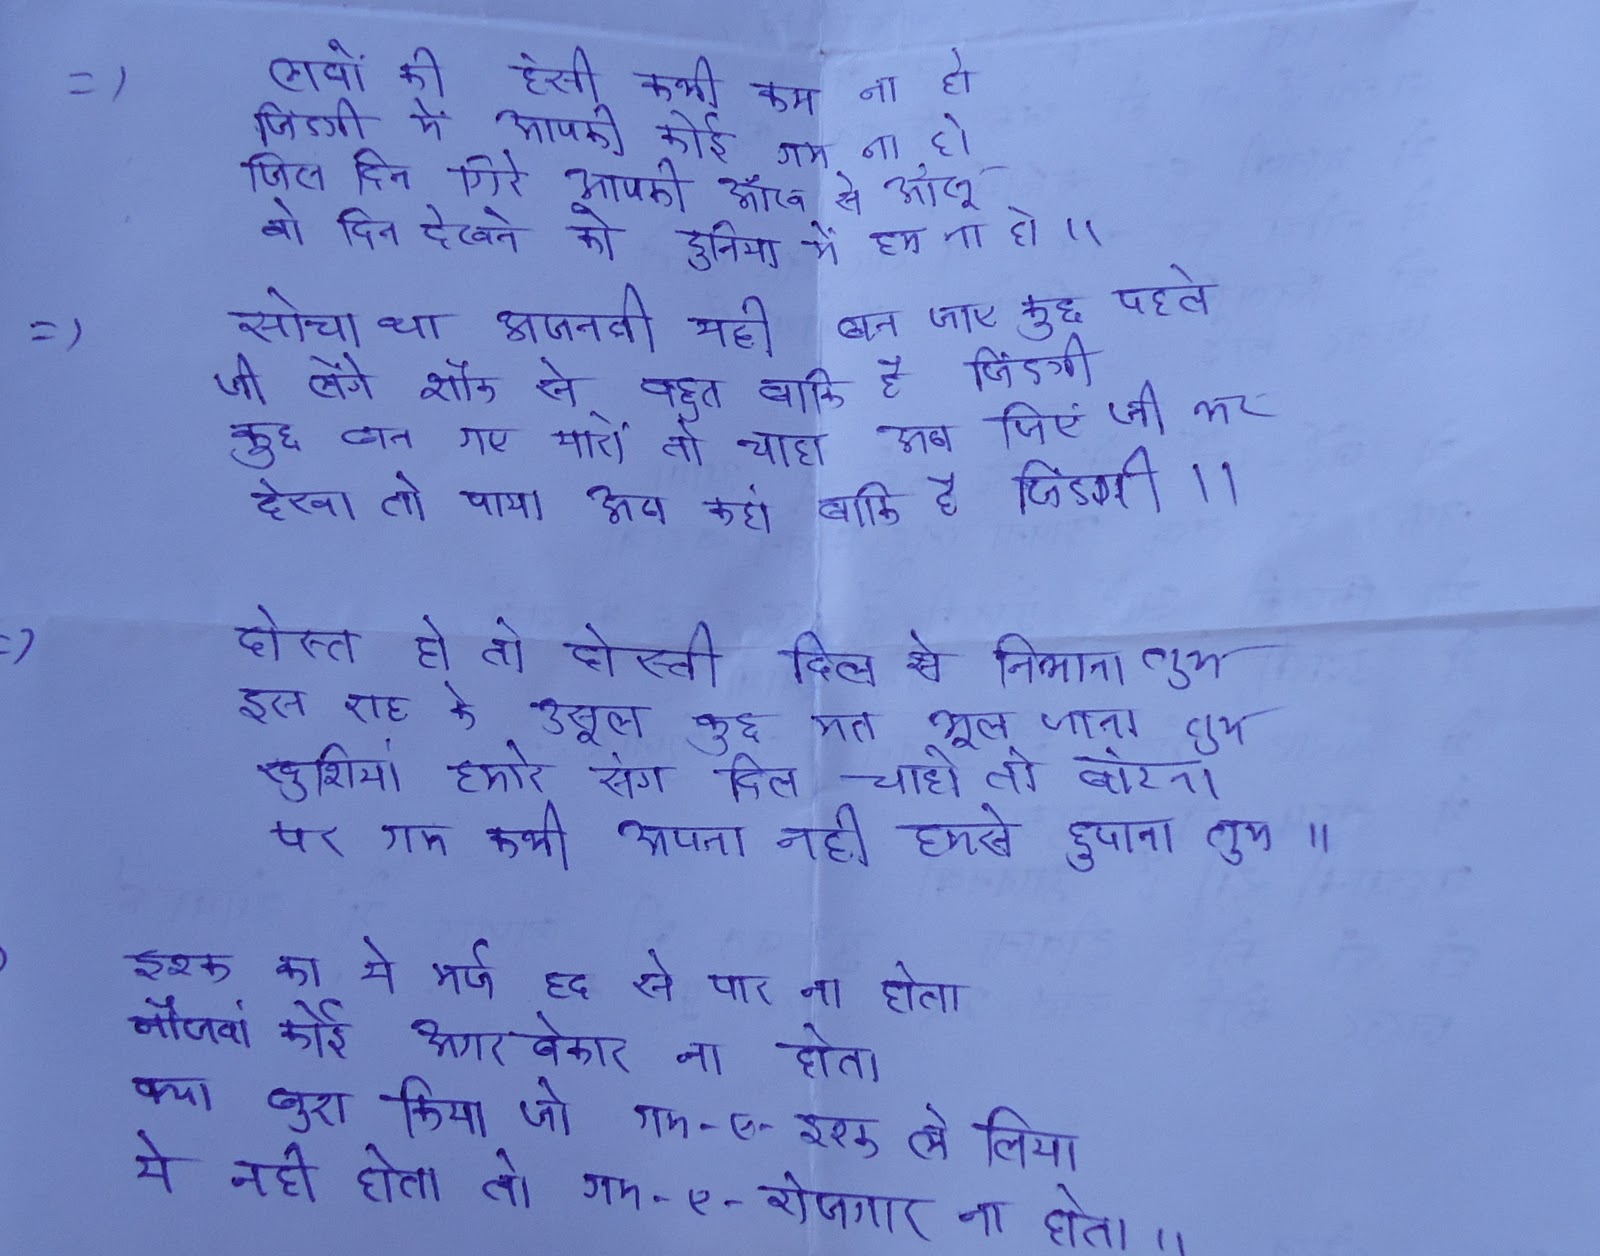 =) लबों की हंसी कभी कम ना हो
जिंदगी में आपकी कोई गम ना हो
जिस दिन गिरे आपकी आँख से आंसू
वो दिन देखने को दुनिया में हम ना हो ॥
=) सोचा था अजनबी यही बन जाए कुछ पहले
जी लेंगे शौक से बहुत बाकि है जिंदगी
कुछ बन गए यारों तो चाहा अब जिएं जी भर
देखा तो पाया अब कहां बाकि है जिंदगी ॥
=) दोस्त हो तो दोस्ती दिल से निभाना तुम
इस राह के उसूल कुछ मत भूल जाना तुम
खुशियां हमारे संग दिल चाहे तो बांटना
पर गम कभी अपना नही हमसे छुपाना तुम ॥
इश्क का ये मर्ज हद से पार ना होता
नौजवां कोई अगर बेकार ना होता
क्या बुरा किया जो गम-ए-इश्क ले लिया
ये नही होता तो गम-ए-रोजगार ना होता ॥